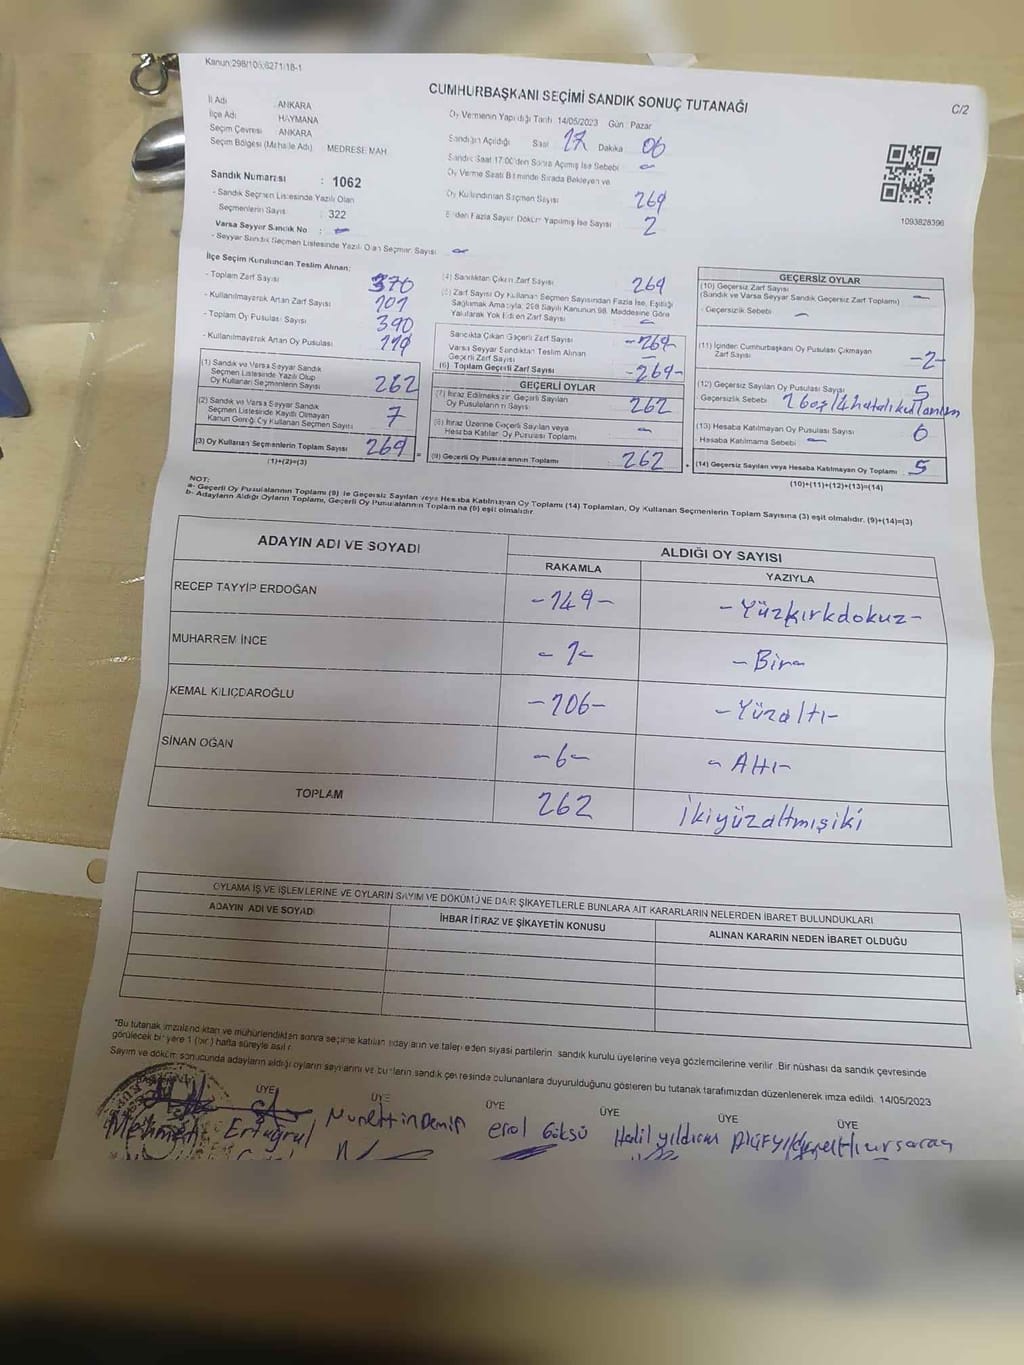 Kanun:298/105,6271/18-1
CUMHURBAŞKANI SEÇİMİ SANDIK SONUÇ TUTANAĞI
C/2
İl Adı : ANKARA
İlçe Adı : HAYMANA
Seçim Çevresi : ANKARA
Seçim Bölgesi (Mahalle Adı) : MEDRESE MAH.
Oy Vermenin Yapıldığı Tarih 14/05/2023 Gün : Pazar
Sandığın Açıldığı Saat 17 Dakika : 06
Sandık Saat 17:00'den Sonra Açılmış İse Sebebi : -
Oy Verme Saati Bitiminde Sırada Bekleyen ve
Oy Kullandırılan Seçmen Sayısı 269
Birden Fazla Sayım Döküm Yapılmış İse Sayısı 2
1093828396
Sandık Numarası : 1062
- Sandık Seçmen Listesinde Yazılı Olan
Seçmenlerin Sayısı : 322
Varsa Seyyar Sandık No : -
- Seyyar Sandık Seçmen Listesinde Yazılı Olan Seçmen Sayısı -
İlçe Seçim Kurulundan Teslim Alınan;
- Toplam Zarf Sayısı 370
- Kullanılmayarak Artan Zarf Sayısı 101
- Toplam Oy Pusulası Sayısı 390
- Kullanılmayarak Artan Oy Pusulası
(1) Sandık ve Varsa Seyyar Sandık
Seçmen Listesinde Yazılı Olup
Oy Kullanan Seçmenlerin Sayısı 262
(2) Sandık ve Varsa Seyyar Sandık
Seçmen Listesinde Kayıtlı Olmayan
Kanun Gereği Oy Kullanan Seçmen Sayısı 7
(3) Oy Kullanan Seçmenlerin Toplam Sayısı 269
(1)+(2)=(3)
(4) Sandıktan Çıkan Zarf Sayısı 269
(5) Zarf Sayısı Oy Kullanan Seçmen Sayısından Fazla İse, Eşitliği
Sağlamak Amacıyla, 298 Sayılı Kanunun 98. Maddesine Göre
Yakılarak Yok Edilen Zarf Sayısı -
Sandıkta Çıkan Geçerli Zarf Sayısı -269-
Varsa Seyyar Sandıktan Teslim Alınan
Geçerli Zarf Sayısı -
(6) Toplam Geçerli Zarf Sayısı -269-
GEÇERLİ OYLAR
(7) İtiraz Edilmeksizin Geçerli Sayılan
Oy Pusulalarının Sayısı 262
(8) İtiraz Üzerine Geçerli Sayılan veya
Hesaba Katılan Oy Pusulası Toplamı -
(9) Geçerli Oy Pusulalarının Toplamı 262
GEÇERSİZ OYLAR
(10) Geçersiz Zarf Sayısı
(Sandık ve Varsa Seyyar Sandık Geçersiz Zarf Toplamı) -
- Geçersizlik Sebebi : -
(11) İçinden Cumhurbaşkanı Oy Pusulası Çıkmayan
Zarf Sayısı -2-
(12) Geçersiz Sayılan Oy Pusulası Sayısı 5
Geçersizlik Sebebi :
(13) Hesaba Katılmayan Oy Pusulası Sayısı
- Hesaba Katılmama Sebebi : -
(14) Geçersiz Sayılan veya Hesaba Katılmayan Oy Toplamı 5
(10)+(11)+(12)+(13)=(14)
NOT:
a- Geçerli Oy Pusulalarının Toplamı (9) ile Geçersiz Sayılan veya Hesaba Katılmayan Oy Toplamı (14) Toplamları, Oy Kullanan Seçmenlerin Toplam Sayısına (3) eşit olmalıdır. (9)+(14)=(3)
b- Adayların Aldığı Oyların Toplamı, Geçerli Oy Pusulalarının Toplamına (9) eşit olmalıdır.
ADAYIN ADI VE SOYADI
ALDIĞI OY SAYISI
RAKAMLA YAZIYLA
RECEP TAYYİP ERDOĞAN -149- -Yüzkırkdokuz-
MUHARREM İNCE -1- -Bir-
KEMAL KILIÇDAROĞLU -106- -Yüzaltı-
SİNAN OĞAN -6- -Altı-
TOPLAM 262 İkiyüzaltmışiki
OYLAMA İŞ VE İŞLEMLERİNE VE OYLARIN SAYIM VE DÖKÜMÜNE DAİR ŞİKAYETLERLE BUNLARA AİT KARARLARIN NELERDEN İBARET BULUNDUKLARI
ADAYIN ADI VE SOYADI İHBAR İTİRAZ VE ŞİKAYETİN KONUSU ALINAN KARARIN NEDEN İBARET OLDUĞU
*Bu tutanak imzalandıktan ve mühürlendikten sonra seçime katılan adayların ve talep eden siyasi partilerin sandık kurulu üyelerine veya gözlemcilerine verilir. Bir nüshası da sandık çevresinde
görülecek bir yere 1 (bir) hafta süreyle asılır.
Sayım ve döküm sonucunda adayların aldığı oyların sayılarını ve bunların sandık çevresinde bulunanlara duyurulduğunu gösteren bu tutanak tarafımızdan düzenlenerek imza edildi. 14/05/2023
ÜYE ÜYE ÜYE ÜYE ÜYE ÜYE
Mehmet Ertuğrul Nurettin Demir Erol Göksü Halil yıldırım